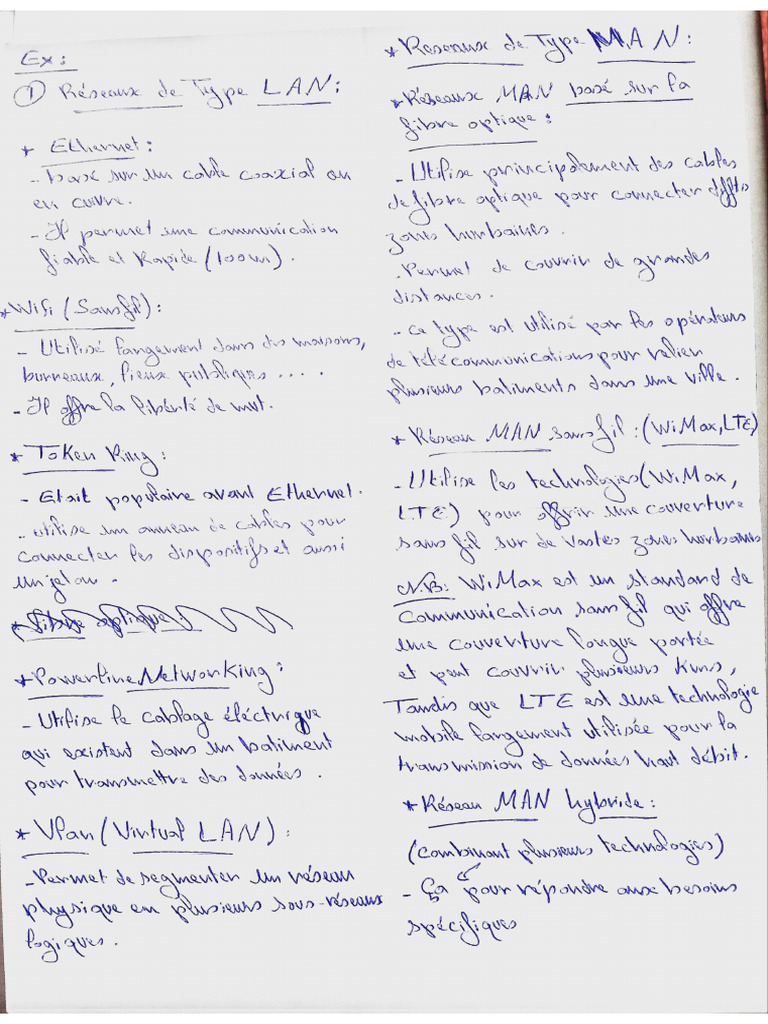 Ex:
① Réseaux de Type LAN:
* Ethernet:
- basé sur un cable coaxial ou
en cuivre.
- Il permet une communication
fiable et Rapide (100m).
* Wifi (Sans fil):
- Utilisé largement dans des maisons,
burreaux, lieux publiques ....
- Il offre la liberté de mvt.
* Token Ring:
- Etait populaire avant Ethernet.
- utilise un anneau de cables pour
connecter les dispositifs et aussi
un jeton.
* Fibre optique
* Powerline NetworKing:
- Utilise le cablage éléctrique
qui existent dans un batiment
pour transmettre des données.
* Vlan (Virtual LAN):
- Permet de segmenter un réseau
physique en plusieurs sous-réseaux
logiques.
* Reseaux de Type MAN:
* Réseaux MAN basé sur la
fibre optique:
- Utilise principalement des cables
de fibre optique pour connecter diffts
zones hurbaines.
- Permet de couvrir de grandes
distances.
- ce type est utilisé par les opérateurs
de télécommunications pour relier
plusieurs batiments dans une ville.
* Réseau MAN sans fil: (WiMax, LTE)
- Utilise les technologies (WiMax,
LTE) pour offrir une couverture
sans fil sur de vastes zones hurbaines
N.B: WiMax est un standard de
communication sans fil qui offre
une couverture longue portée
et peut couvrir plusieurs kms,
Tandis que LTE est une technologie
mobile largement utilisée pour la
transmission de données haut débit.
* Réseau MAN hybride:
(combinant plusieurs technologies)
- Ça pour répondre aux besoins
spécifiques